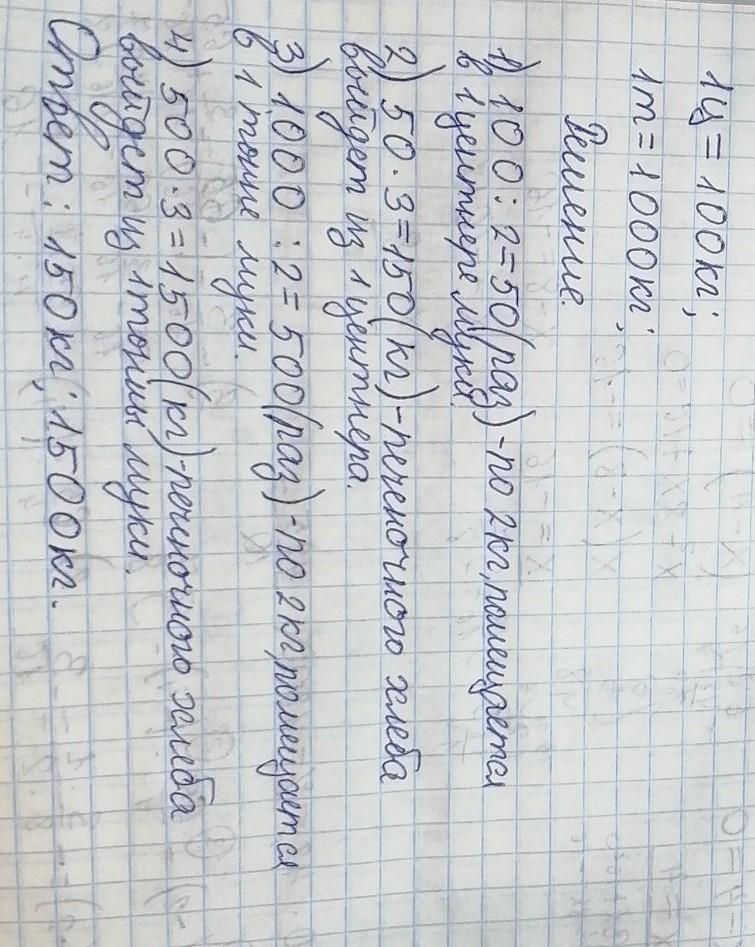 1ц = 100кг;
1т = 1000кг;
Решение.
1) 100 : 2 = 50 (раз) - по 2кг, помещается
в 1 центнере муки.
2) 50 · 3 = 150 (кг) - печеночного хлеба
выйдет из 1 центнера.
3) 1000 : 2 = 500 (раз) - по 2кг, помещается
в 1 тонне муки.
4) 500 · 3 = 1500 (кг) - печеночного хлеба
выйдет из 1 тонны муки.
Ответ: 150 кг; 1500 кг.